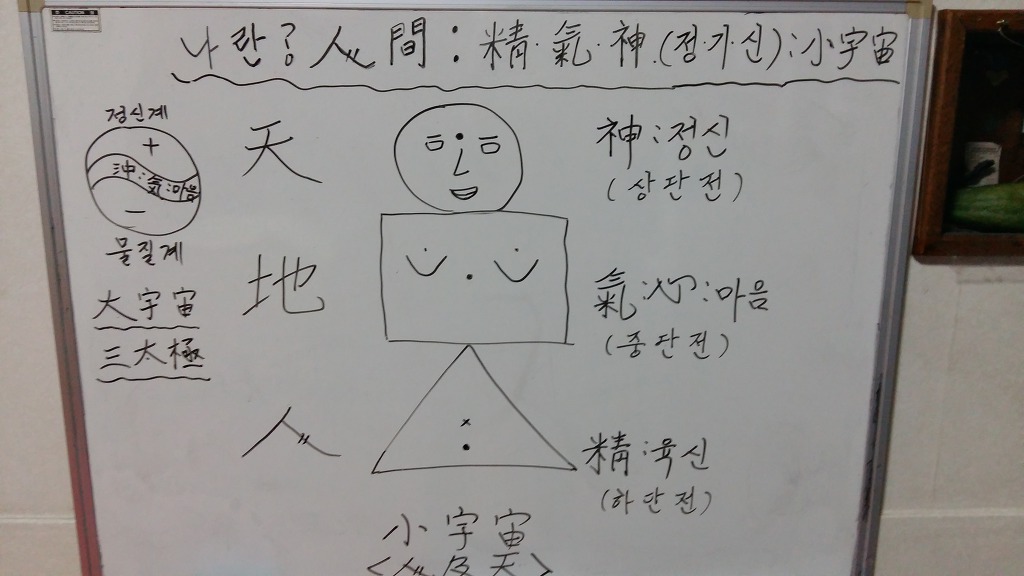 CAUTION
나란? 人間 : 精·氣·神.(정·기·신) : 小宇宙
정신계
+
沖 : 氣 : 마음
-
물질계
大宇宙
三太極
天
地
人
神 : 정신
(상단전)
氣 : 心 : 마음
(중단전)
精 : 육신
(하단전)
小宇宙
<人及天>